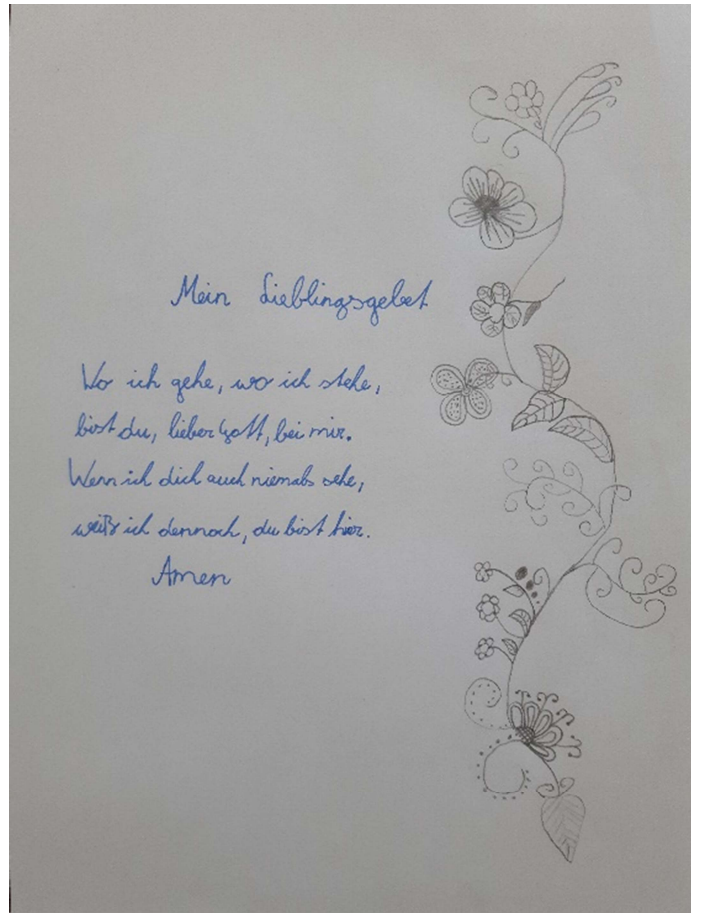 Mein Lieblingsgebet
Wo ich gehe, wo ich stehe,
bist du, lieber Gott, bei mir.
Wenn ich dich auch niemals sehe,
weiß ich dennoch, du bist hier.
Amen